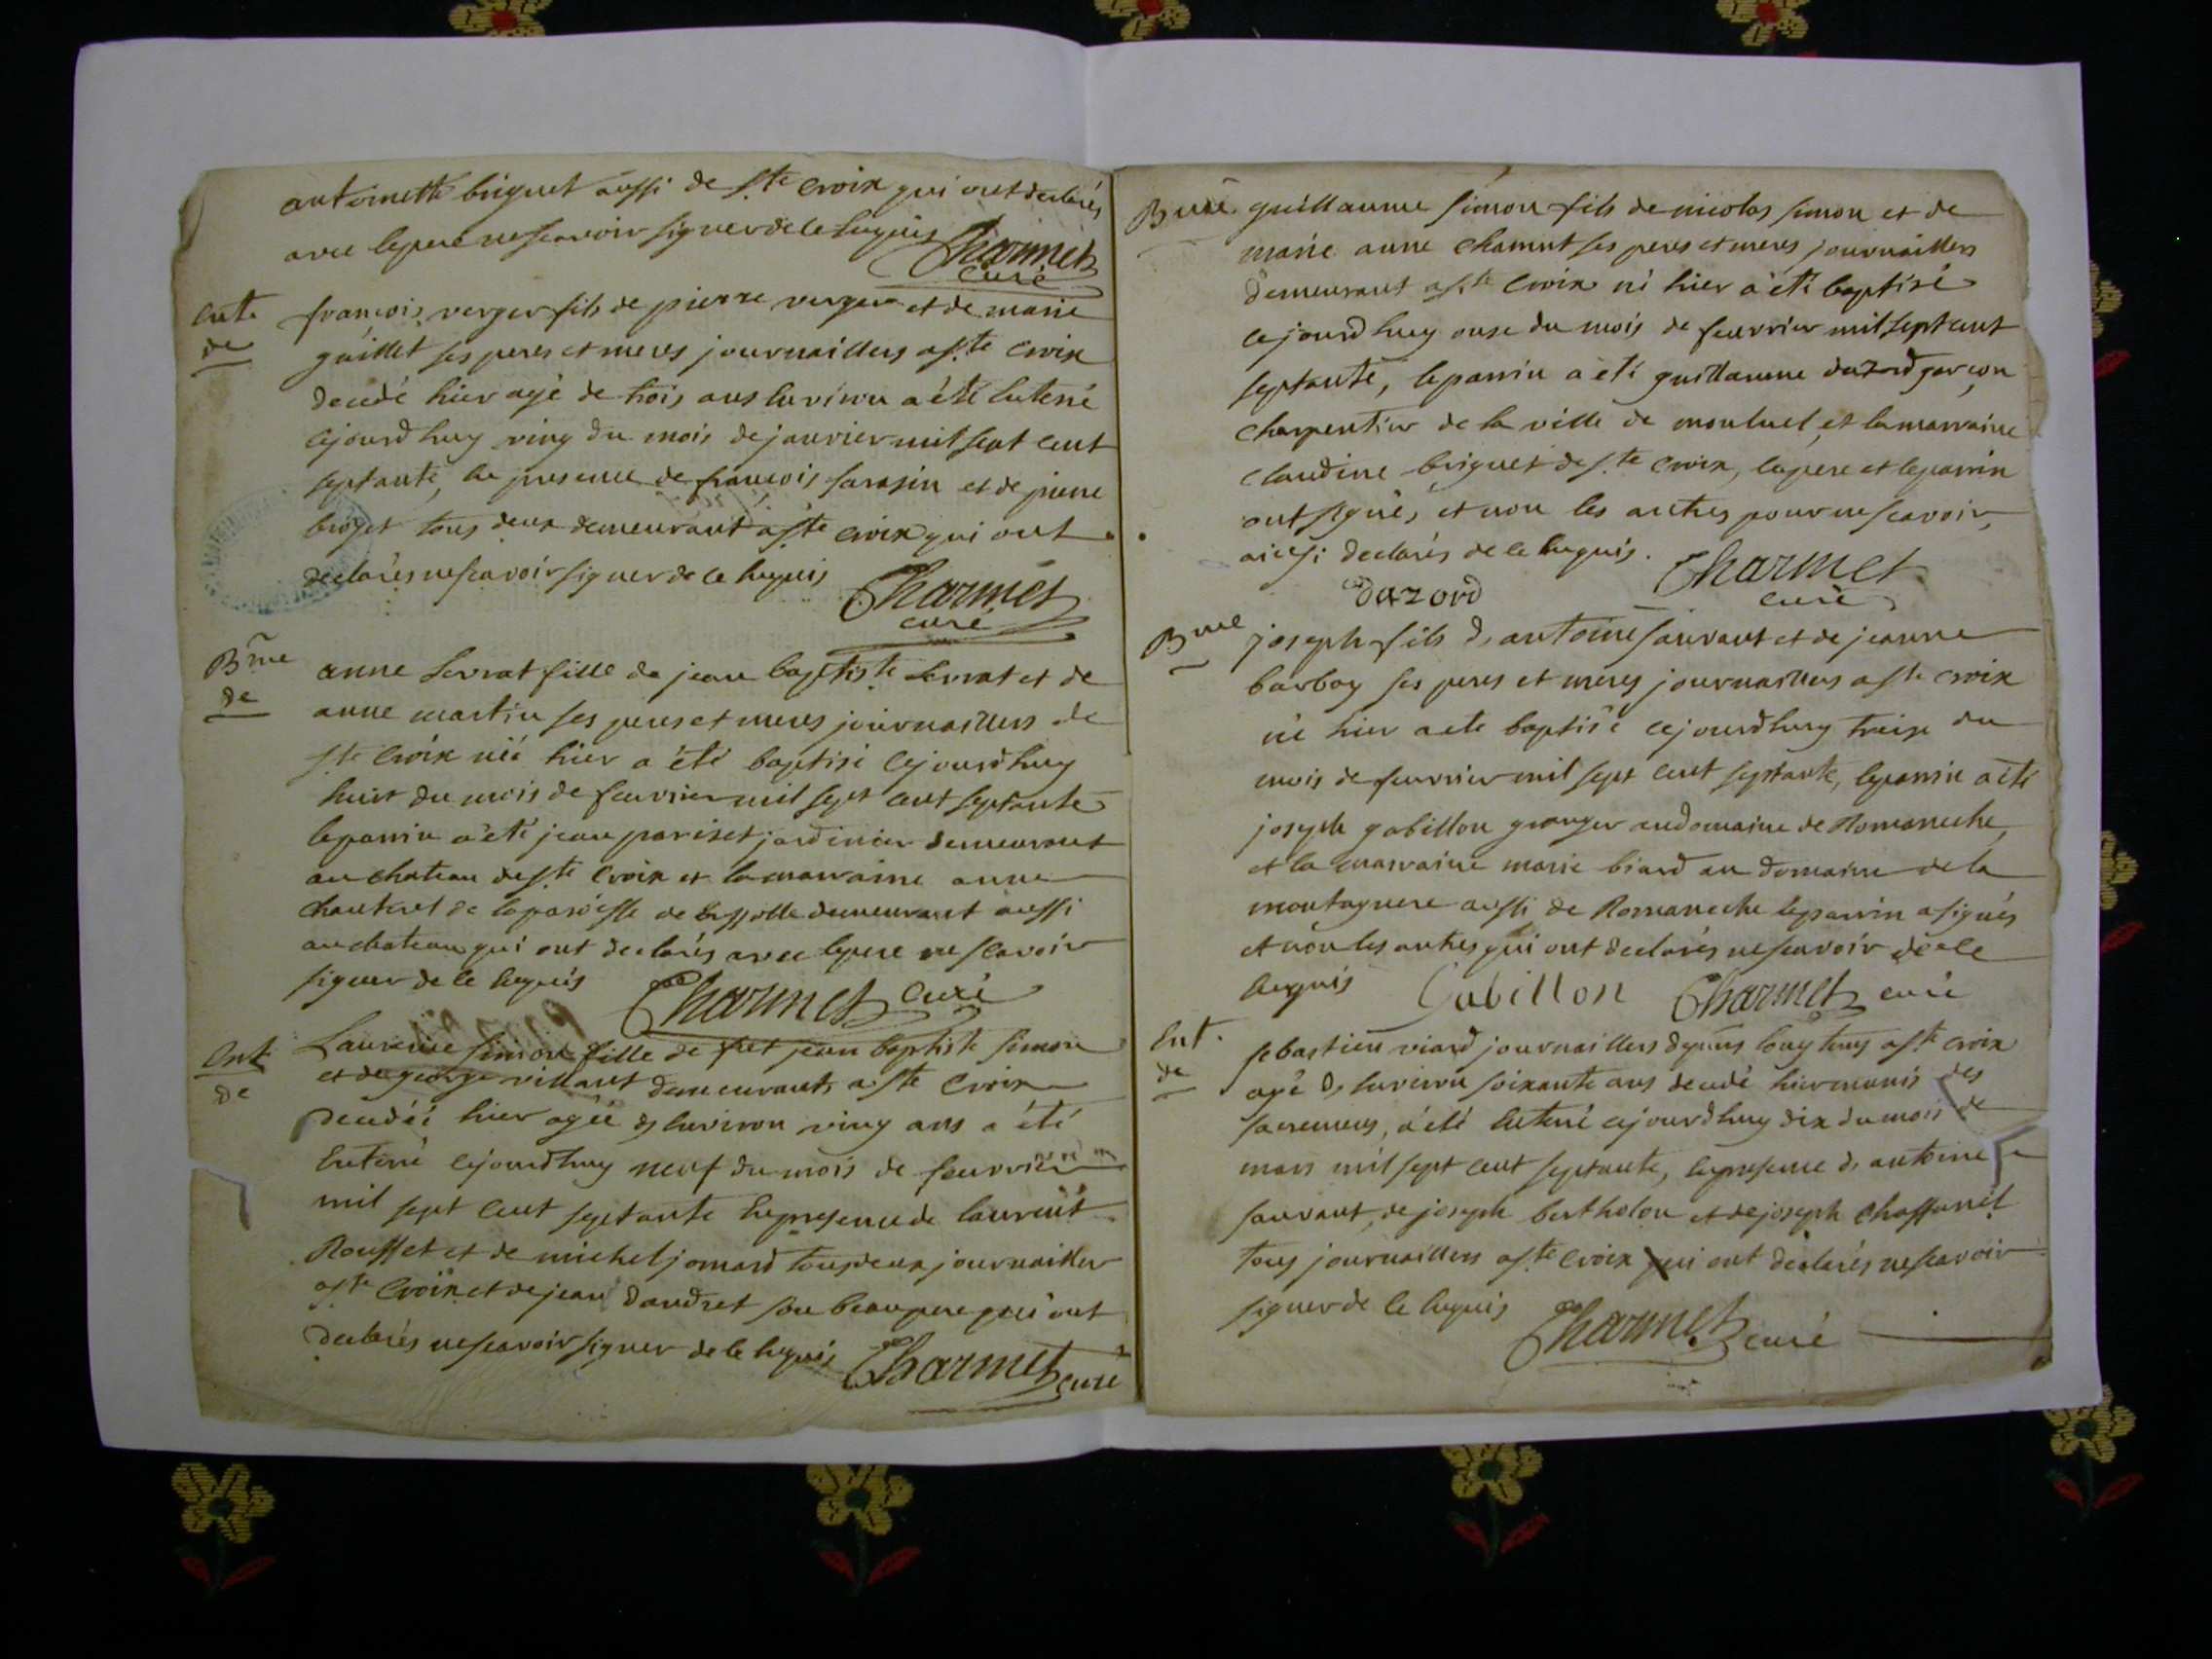 antoinette briguet aussi de Ste croix qui ont declarés
avec le pere ne scavoir signer de ce enquis
Charmet
curé
Ent.
de
françois verger fils de pierre verger et de marie
guillet ses peres et meres journailliers a Ste croix
decedé hier agé de trois ans environ a été enterré
cejourdhuy ving du mois de janvier mil sept cent
septante, en presence de françois sarasin et de pierre
broyet tous deux demeurant a Ste croix qui ont
declarés ne scavoir signer de ce enquis
Charmet
curé
Bme
de
anne serrat fille de jean baptiste serrat et de
anne martin ses peres et meres journailliers de
Ste croix née hier a été baptisé cejourdhuy
huit du mois de feuvrier mil sept cent septante
le parrin a été jean pariset jardinier demeurant
au chateau de Ste croix et la marraine anne
de la paroisse de demeurant aussi
au chateau qui ont declarés avec le pere ne scavoir
signer de ce enquis
Charmet curé
Ent.
de
Laurence simon fille de fut jean baptiste simon
et de george villant demeurants a Ste croix
decedéé hier agée de environ ving ans a été
enterré cejourdhuy neuf du mois de feuvrier
mil sept cent septante en presence de laurent
Rousset et de michel jomard tous deux journaillier
a Ste croix et de jean dandret son beau pere qui ont
declarés ne scavoir signer de ce enquis
Charmet curé
Bme
guillaume simon fils de nicolas simon et de
marie anne chamut ses peres et meres journailliers
demeurant a Ste croix né hier a été baptisé
cejourdhuy onse du mois de feuvrier mil sept cent
septante, le parrin a été guillaume dazord garçon
charpentier de la ville de monluel et la marraine
claudine briguet de Ste croix, le pere et le parrin
ont signés et non les autres pour ne scavoir,
ainsi declarés de ce enquis.
Charmet
curé
dazord
Bme
joseph fils de antoine sauvant et de jeanne
barboy ses peres et meres journailliers a Ste croix
né hier a eté baptisé cejourdhuy treize du
mois de feuvrier mil sept cent septante, le parrin a été
joseph gabillon granger au domaine de Romaneche,
et la marraine marie biard au domaine de la
montagnere aussi de Romaneche le parrin a signés
et non les autres qui ont declarés ne scavoir de ce
enquis
Gabillon Charmet curé
Ent.
de
sebastien viard journailliers depuis long tems a Ste croix
agé de environ soixante ans decedé hier munis des
sacremens, a été enterré cejourdhuy dix du mois de
mars mil sept cent septante, en presence de antoine
sauvant, de joseph bertholon et de joseph chaffanel
tous journailliers a Ste croix qui ont declarés ne scavoir
signer de ce enquis
Charmet curé